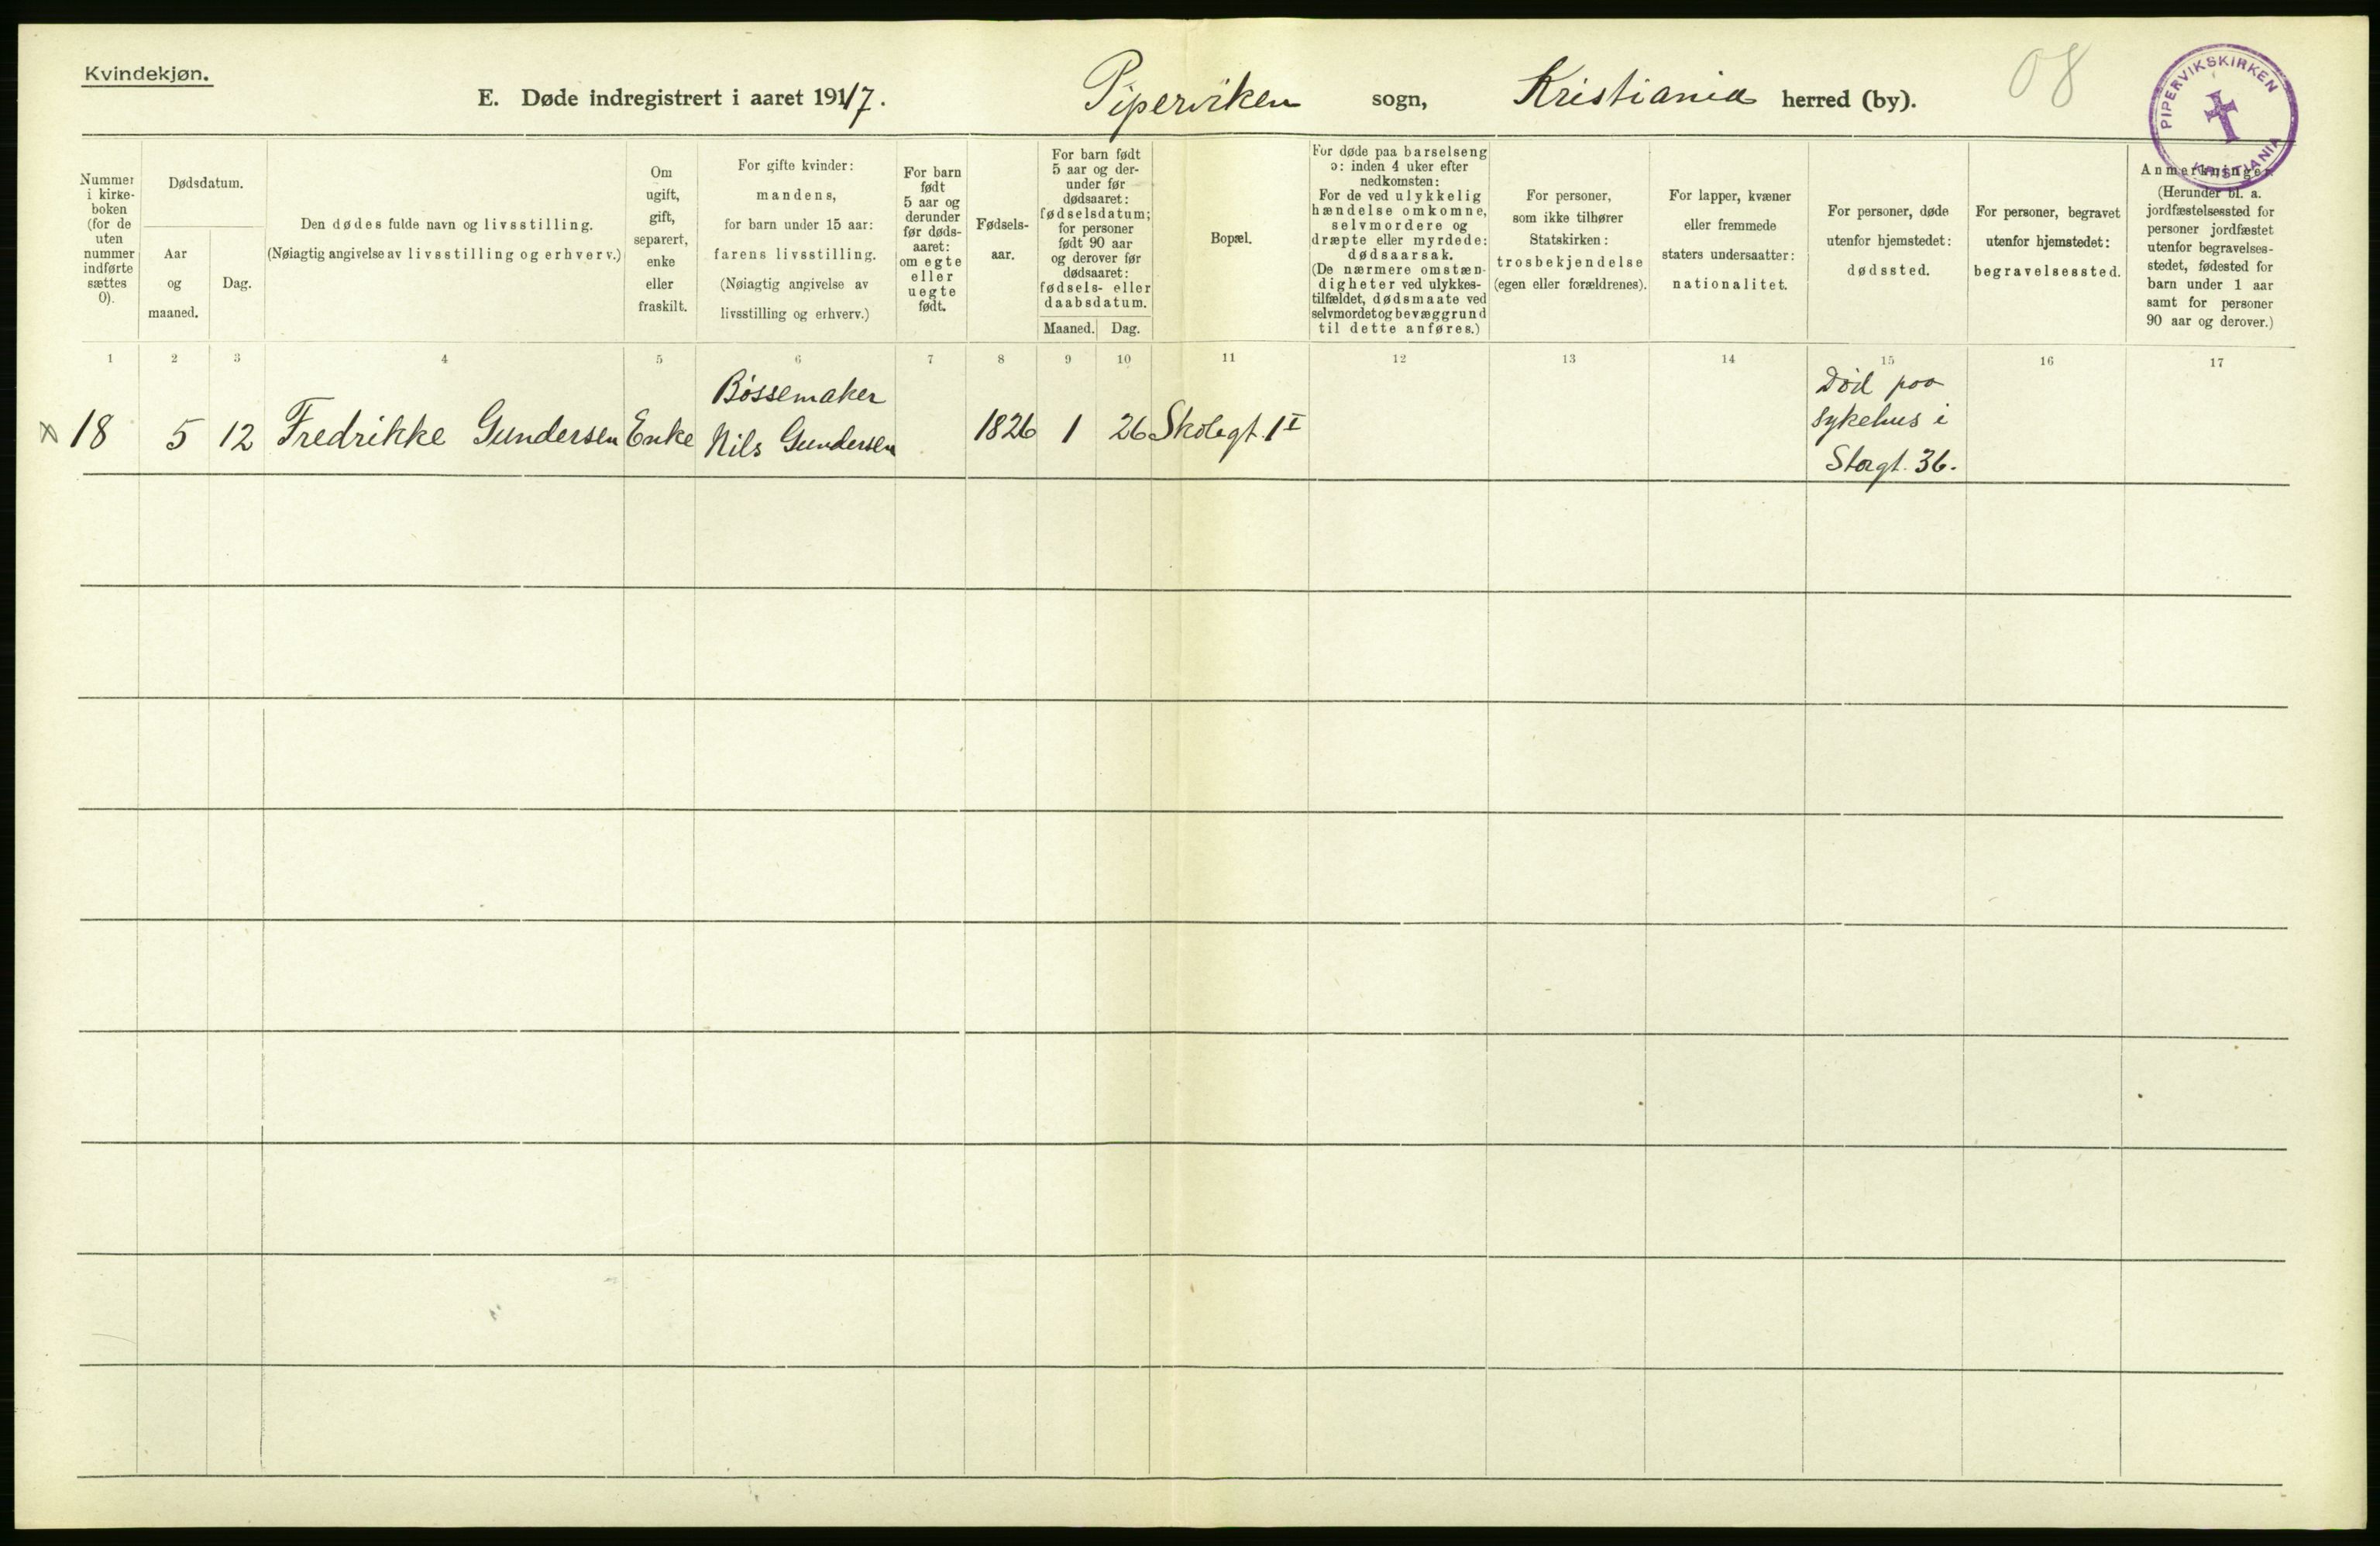 Kvindekjøn.
E. Døde indregistrert i aaret 1917. Piperviken sogn, Kristiania herred (by).
08
PIPERVIKSKIRKEN
KRISTIANIA
Nummer
i kirke-
boken
(for de
uten
nummer
indførte
sættes
0).
Dødsdatum.
Aar
og
maaned.
Dag.
Den dødes fulde navn og livsstilling.
(Nøiagtig angivelse av livsstilling og erhverv.)
Om
ugift,
gift,
separert,
enke
eller
fraskilt.
For gifte kvinder:
mandens,
for barn under 15 aar:
farens livsstilling.
(Nøiagtig angivelse av
livsstilling og erhverv.)
For barn
født
5 aar og
derunder
før døds-
aaret:
om egte
eller
uegte
født.
Fødsels-
aar.
For barn født
5 aar og der-
under før
dødsaaret:
fødselsdatum;
for personer
født 90 aar
og derover før
dødsaaret:
fødsels- eller
daabsdatum.
Maaned. Dag.
Bopæl.
For døde paa barselseng
ɔ: inden 4 uker efter
nedkomsten:
For de ved ulykkelig
hændelse omkomne,
selvmordere og
dræpte eller myrdede:
dødsaarsak.
(De nærmere omstæn-
digheter ved ulykkes-
tilfældet, dødsmaate ved
selvmordet og bevæggrund
til dette anføres.)
For personer,
som ikke tilhører
Statskirken:
trosbekjendelse
(egen eller forældrenes).
For lapper, kvæner
eller fremmede
staters undersaatter:
nationalitet.
For personer, døde
utenfor hjemstedet:
dødssted.
For personer, begravet
utenfor hjemstedet:
begravelsessted.
Anmerkninger.
(Herunder bl. a.
jordfæstelsessted for
personer jordfæstet
utenfor begravelses-
stedet, fødested for
barn under 1 aar
samt for personer
90 aar og derover.)
1 2 3 4 5 6 7 8 9 10 11 12 13 14 15 16 17
18 5 12 Fredrikke Gundersen Enke
Bøssemaker
Nils Gundersen
1826 1 26 Skolegt. 1 I
Død paa
sykehus i
Storgt. 36.